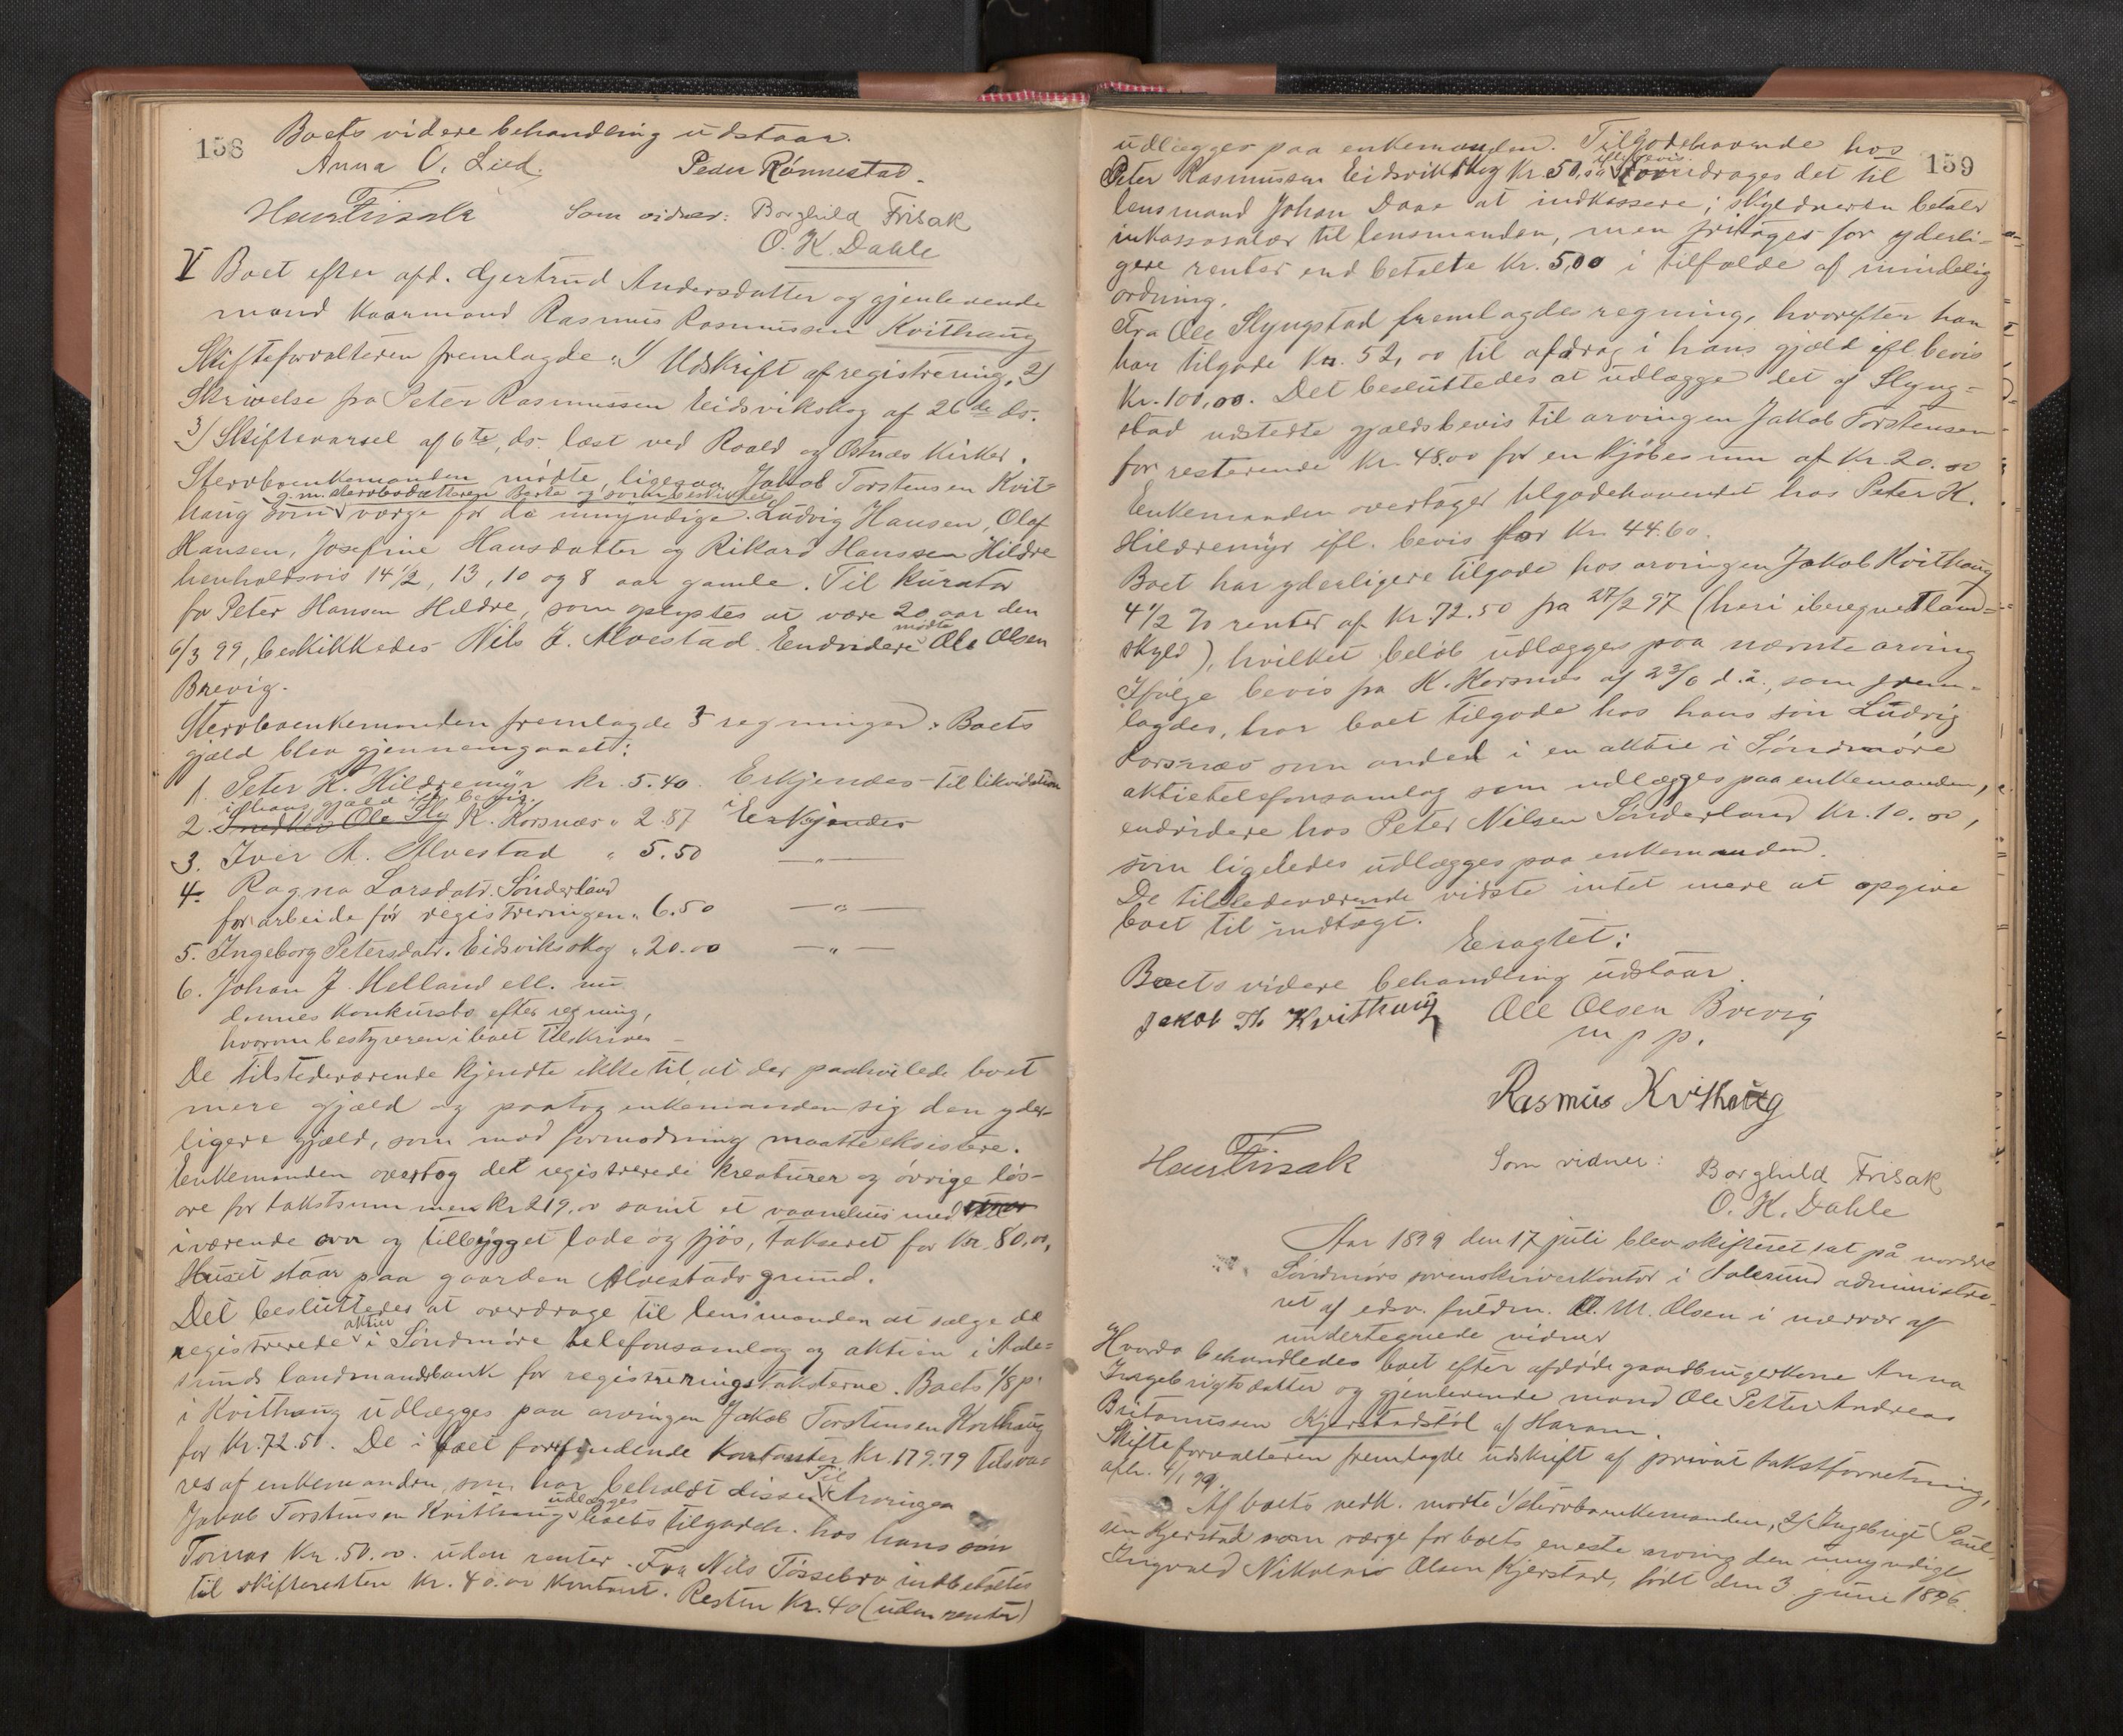 158
Boets videre behandling udstaar.
Anna O. Lied. Peder Rønnestad.
Hans Frisak Som vidner: Borghild Frisak
O. K. Dahle
V Boet efter afd. Gjertrud Andersdatter og gjenlevende
mand kaarmand Rasmus Rasmussen Kvithaug
Skifteforvalteren fremlagde: 1) Udskrift af registrering, 2)
Skrivelse fra Peter Rasmussen Eidsvikskog af 26de ds.
3) Skiftevarsel af 6te ds. læst ved Roald og Østnæs Kirker.
Stervboenkemanden mødte, ligesaa Jakob Torstensen Kvit-
g. m. stervbodatteren Berte og som beskikket
haug som værge for de umyndige Ludvig Hansen, Olaf
Hansen, Josefine Hansdatter og Rikard Hanssen Hildre
henholdsvis 14 1/2, 13, 10 og 8 aar gamle. Til kurator
for Peter Hansen Hildre, som oplystes at være 20 aar den
6/3 99, beskikkedes Nils J. Alvestad. Endvidere mødte Ole Olsen
Brevig.
Stervboenkemanden fremlagde 3 regninger. Boets
gjæld blev gjennemgaaet:
1. Peter K. Hildremyr kr. 5.40 Erkjendes til likvidation
i hans gjæld ifl. bevis.
2. Snedker Ole Sly K. Korsnæs " 2.87 Erkjendes
3. Iver A. Alvestad " 5.50 — " —
4. Ragna Larsdatr. Sønderland
for arbeide før registreringen " 6.50 — " —
5. Ingeborg Petersdatr. Eidsvikskog " 20.00 — " —
6. Johan J. Helland ell. nu
dennes konkursbo efter regning,
hvorom bestyreren i boet tilskrives
De tilstedeværende kjendte ikke til, at der paahvilede boet
mere gjæld og paatog enkemanden sig den yder-
ligere gjæld, som mod formodning maatte eksistere.
Enkemanden overtog det registrerede kreaturer og øvrige løs-
øre for takstsummen kr 219.00 samt et vaanehus med
iværende ovn og tilbygget lade og fjøs, takseret for Kr. 80.00,
Huset staar paa gaarden Alvestads grund.
Det besluttedes at overdrage til lensmanden at sælge de
registrerede aktier i Søndmøre telefonsamlag og aktien i Aale-
sunds landmandsbank for registreringstaksterne. Boets 1/8 p.
i Kvithaug udlægges paa arvingen Jakob Torstensen Kvithaug
for Kr. 72.50. De i boet forefindende Kontanter Kr. 179.79 tilsva-
res af enkemanden, som har beholdt disse. Til Arvingen
Jakob Torstensen Kvithaug udlægges boets tilgodeh. hos hans søn
Tomas Kr. 50.00. uden renter. Fra Nils Tøssebro indbetaltes
til skifteretten Kr. 40.00 kontant. Resten Kr. 40 (uden renter)
159
udlægges paa enkemanden. Tilgodehavende hos
Peter Rasmussen Eidsvikskog Kr. 50,00 ifl. bevis overdrages det til
lensmand Johan Daae at indkassere; skyldneren betaler
inkassosalær til lensmanden, men fritages for yderli-
gere renter end betalte Kr. 5,00 i tilfælde af mindelig
ordning.
Fra Ole Slyngstad fremlagdes regning, hvorefter han
har tilgode Kr. 52,00 til afdrag i hans gjæld ifl bevis
Kr. 100,00. Det besluttedes at udlægge det af Slyng-
stad udstedte gjældsbevis til arvingen Jakob Torstensen
for resterende Kr. 48.00 for en kjøbesum af Kr. 20.00
Enkemanden overtager tilgodehavendet hos Peter K.
Hildremyr ifl. bevis for Kr. 44.60.
Boet har yderligere tilgode hos arvingen Jakob Kvithaug
4 1/2 % renter af Kr. 72.50 fra 27/2 97 (heri iberegnet land-
skyld), hvilket beløb udlægges paa nævnte arving
Ifølge bevis fra K. Korsnæs af 23/6 d.å., som frem-
lagdes, har boet tilgode hos hans søn Ludvig
Korsnæs sum anden i en aktie i Søndmøre
aktietelefonsamlag som udlægges paa enkemanden,
endvidere hos Peter Nilsen Sønderland Kr. 10.00,
som ligeledes udlægges paa enkemanden.
De tilstedeværende vidste intet mere at opgive
boet til indtægt.
Eragtet:
Boets videre behandling udstaar.
Jakob Th. Kvithaug Ole Olsen Brevig
m p p.
Rasmus Kvithaug
Hans Frisak Som vidner: Borghild Frisak
O. K. Dahle
Aar 1899 den 17 juli blev skifteret sat på nordre
Søndmørs sorenskriverkontor i Aalesund administre-
ret af edsv. fuldm. O. M. Olsen i nærvær af
undertegnede vidner
Hvorda behandledes boet efter afdøde gaardbrugerkone Anna
Ingebrigtsdatter og gjenlevende mand Ole Petter Andreas
Britanussen Kjerstadstøl af Haram.
Skifteforvalteren fremlagde udskrift af privat takstforretning,
afh. 4/1 99.
Af boets vedk. mødte 1/ stervboenkemanden, 2/ Ingebrigt Paul-
sen Kjerstad som værge for boets eneste arving den umyndige
Ingvald Nikolais Olsen Kjerstad, født den 3 juni 1896.